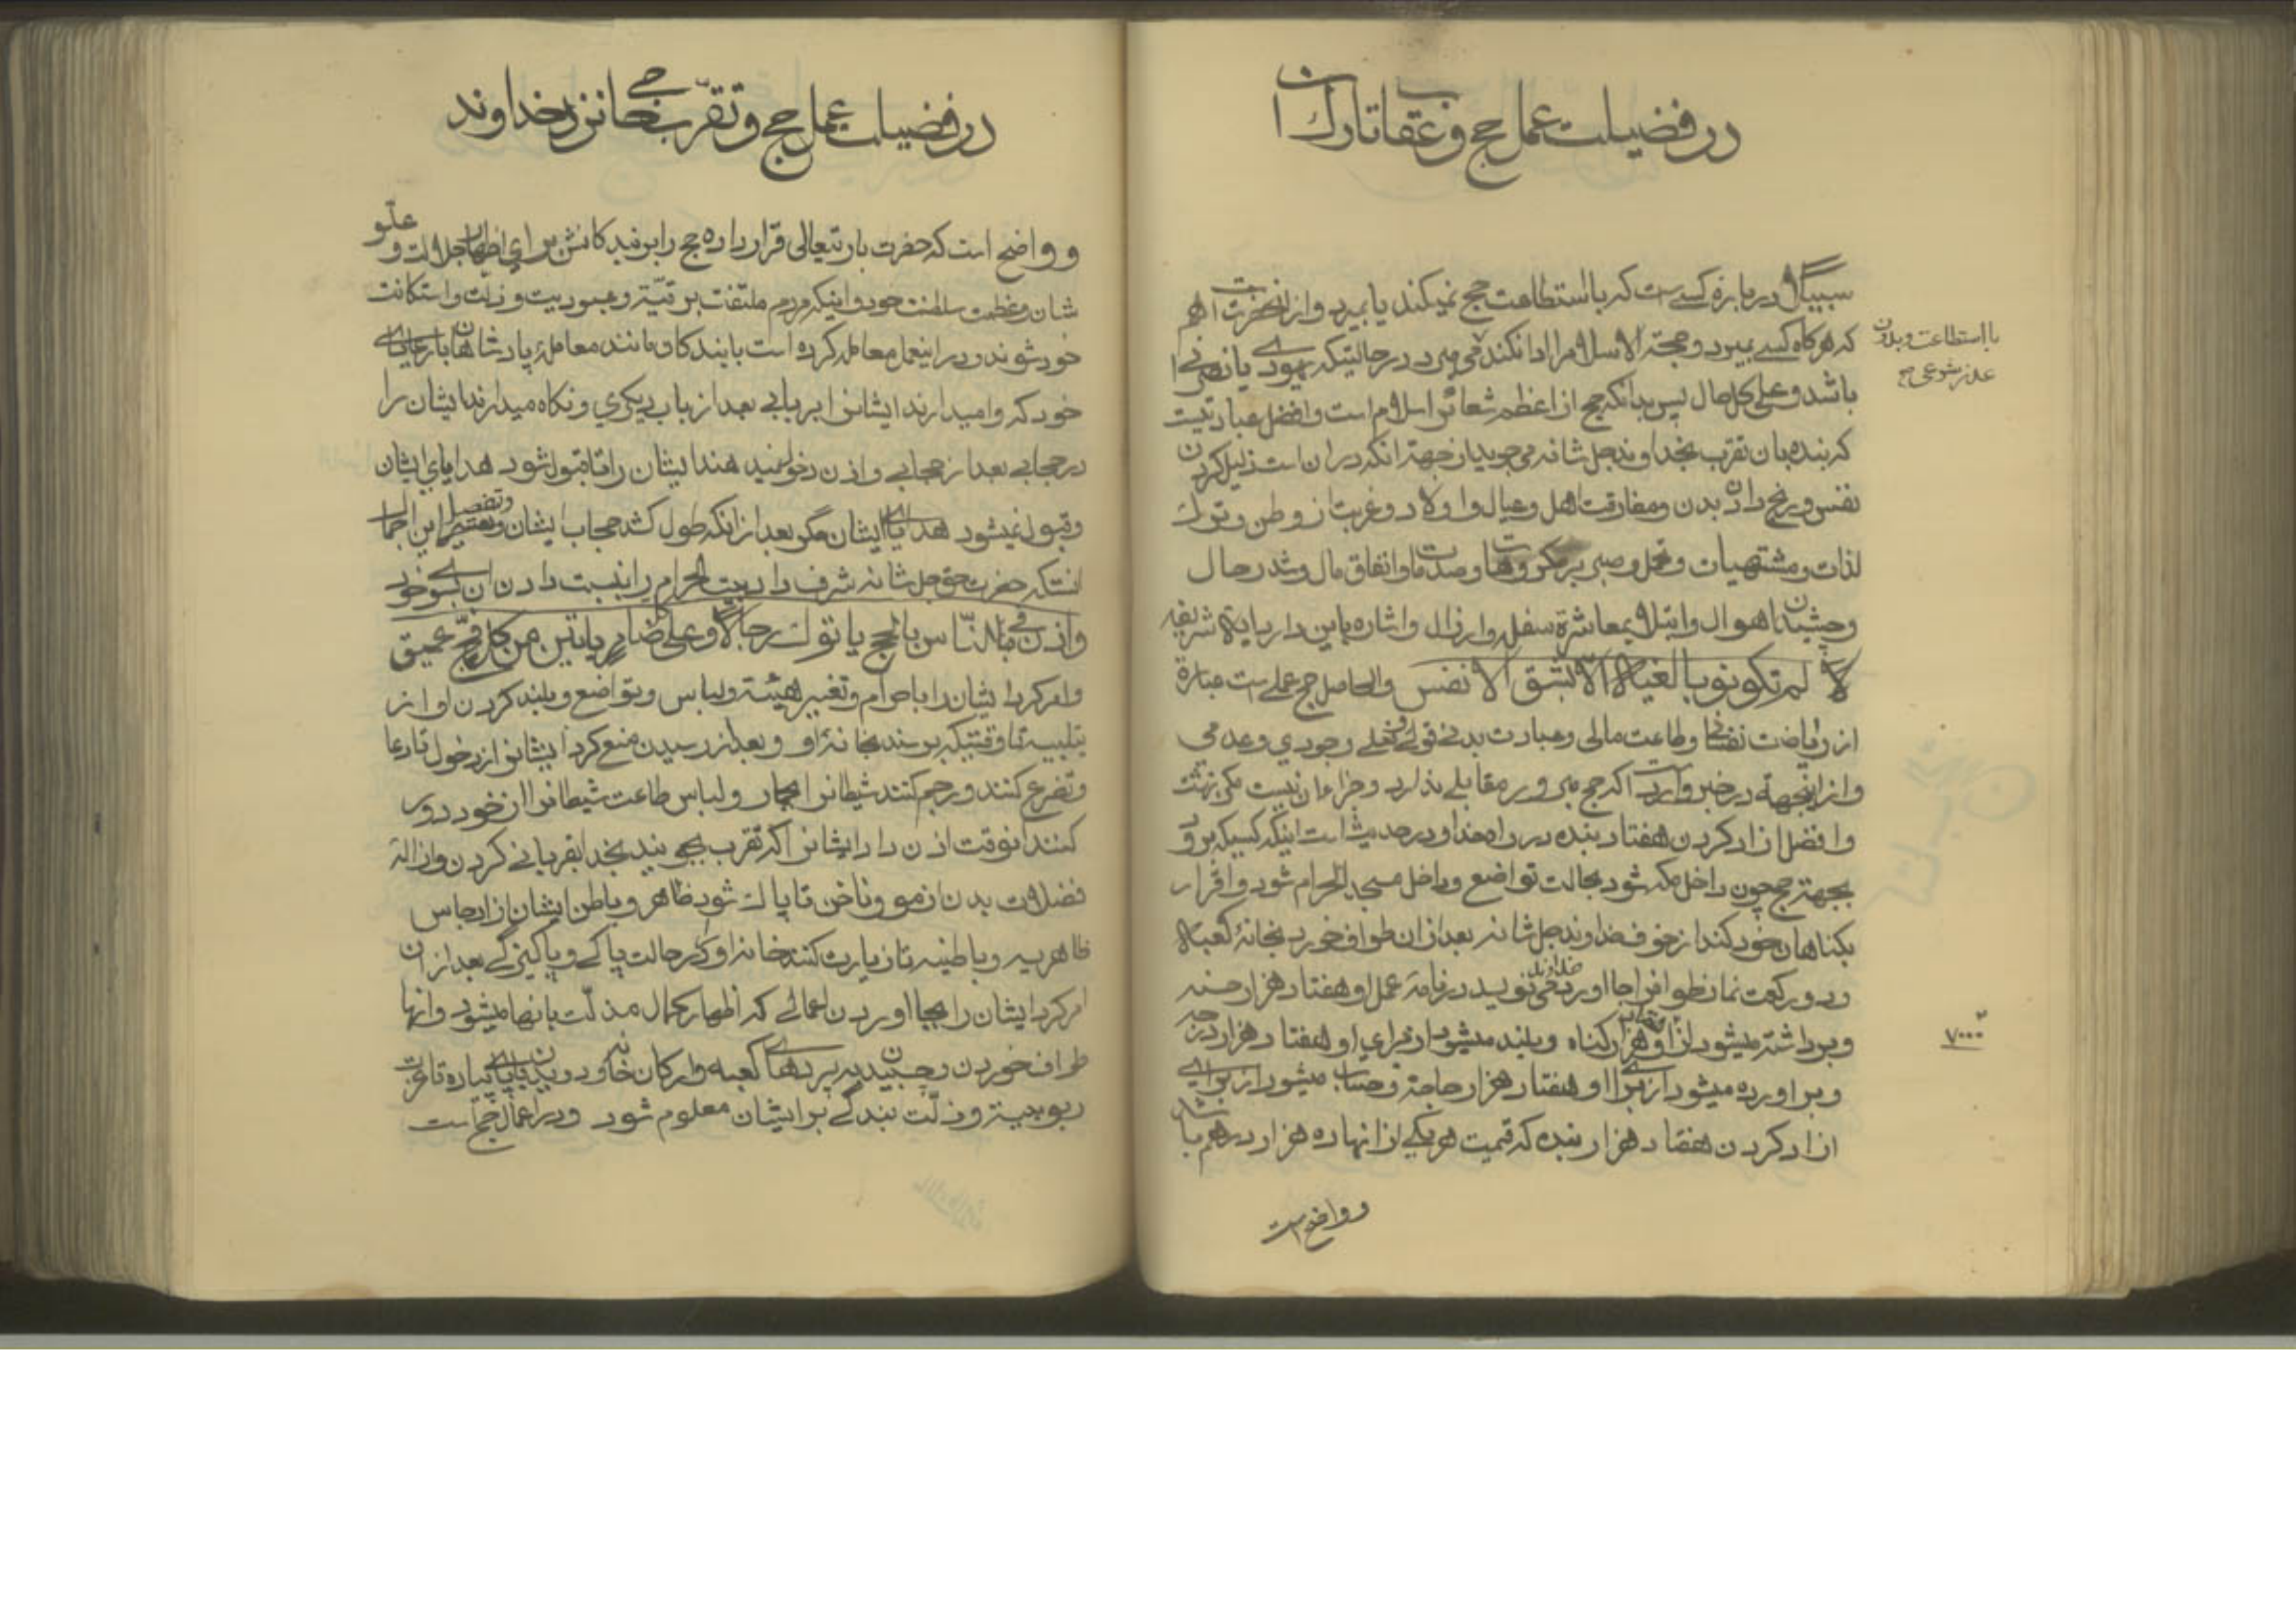 در فضیلت عمل حج و عقاب تارک ان
سبیلا در باره کسے است که با استطاعت حج نمیکند یا بمیرد و از انحضرت است هم
با استطاعت و بدون
عذر شرعی حج
که هر کاه کسے بمیرد و حجة الاسلام را ادا نکند می میرد در حالتیکه یهودے یا نصرانی
باشد و علی کل حال پس بدانکه حج از اعظم شعائر اسلام است و افضل عباداتیست
که بنده بان تقرب بخداوند جل شانه می جوید از جهة انکه در ان است ذلیل کردن
نفس و رنج دادن بدن و مفارقت اهل و عیال و اولاد و غربت از وطن و ترک
لذات و مشتهیات و تحمل و صبر بر مکروهات و صدمات و انفاق مال و شد رحال
و چشیدن اهوال و ابتلا بمعاشرة سفله و ارذال و اشاره باین دارد ایة شریفه
لا لم تکونو بالغیه الا بشق الانفس والحاصل حج عملے است عبارة
از ریاضت نفسانی و طاعت مالی و عبادت بدنے قولے و فعلے وجودي و عدمی
و از اینجهة در خبر وارد است که حج مبرور مقابلے ندارد و جزاء ان نیست مکر بهشت
و افضل از ازاد کردن هفتاد بنده در راه خدا و در حدیث است اینکه کسیکه برود
بجهة حج چون داخل مکه شود بحالت تواضع و داخل مسجد الحرام شود و اقرار
بکناهان خود کند از خوف خداوند جل شانه بعد از ان طواف خورد بخانۀ کعبه
و دو رکعت نماز طواف را بجا اورد خداوند می نویسد در نامۀ عمل او هفتاد هزار حسنه
و برداشته میشود از او هفتاد هزار کناه و بلند میشود از براي او هفتاد هزار درجه
۷۰۰۰۰
و براورده میشود از براے او هفتاد هزار حاجة و حساب میشود از براے
ازاد کردن هفتاد هزار بنده که قیمت هر یکے از انها ده هزار درهم باشد
و واضح است
در فضیلت عمل حج و تقرب حاجے نزد خداوند
و واضح است که حضرت باریتعالی قرار داده حج را بر بندکانش براي اظهار جلالت و علو
شان و عظمت سلطنت خود و اینکه مردم ملتفت بر رقیة و عبودیت و ذلت و استکانت
خود شوند و در اینعمل معامله کرده است با بندکان مانند معاملۀ پادشاهان با رعایاے
خود که وامیدارند ایشانرا بر بابے بعد از باب دیکري و نکاه میدارند ایشان را
در حجابے بعد از حجابے و اذن دخول نمیدهند ایشان را تا قبول شود هدایاي ایشان
و قبول نمیشود هدایاے ایشان مکر بعد از انکه طول کشد حجاب ایشان و تفصیل این اجمال
انستکه حضرت حق جل شانه شرف داد بیت الحرام را بنسبت دادن ان بسوے خود
و اذن فی الناس بالحج یاتوک رجالا و علی کل ضامر یاتین من کل فج عمیق
و امر کرد ایشان را باحرام و تغییر هیئة و لباس و تواضع و بلند کردن اواز
بتلبیه تا وقتیکه برسند بخانۀ او و بعد از رسیدن منع کرد ایشانرا از دخول تا دعا
و تضرع کنند و رجم کنند شیطانرا باحجار و لباس طاعت شیطانرا از خود دور
کنند انوقت اذن داد ایشانرا که تقرب بجویند بخدا بقربانے کردن و ازالۀ
فضلات بدن از مو و ناخن تا پاک شود ظاهر و باطن ایشان از ارجاس
ظاهریه و باطنیه تا زیارت کنند خانه او را در حالت پاکے و پاکیزکے بعد از ان
امر کرد ایشان را بجا اوردن اعمالے که اظهار کمال مذلت بانها میشود و انها
طواف خوردن و چسبیدن بر پردهاے کعبه و ارکان خانه و دویدن با پاے پیاده تا عزت
ربوبیة و ذلت بندکے بر ایشان معلوم شود و در اعمال حج است